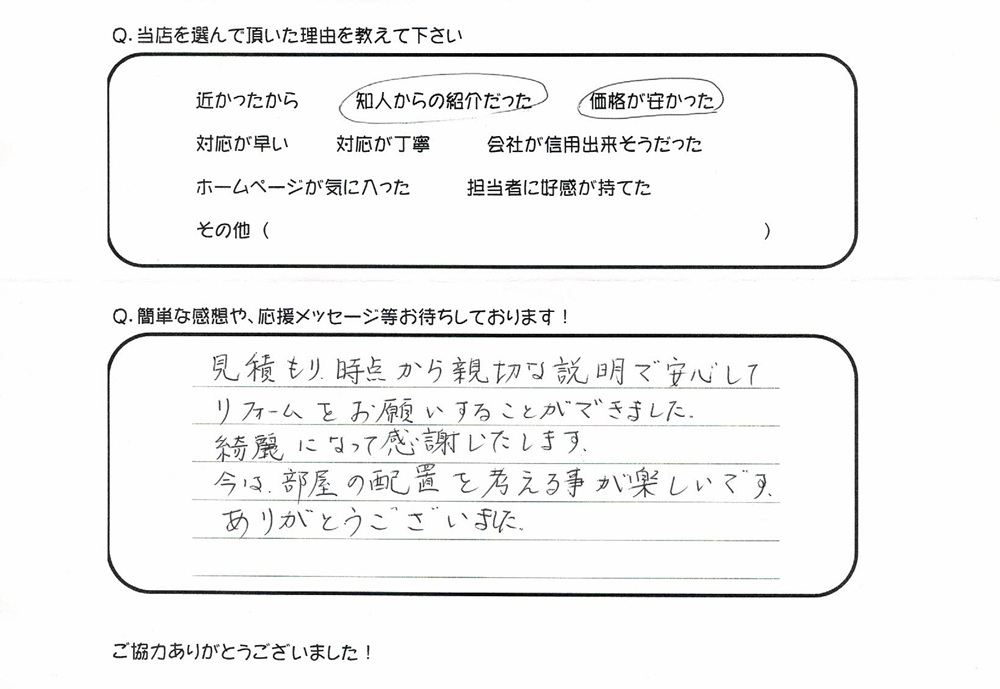 Q.当店を選んで頂いた理由を教えて下さい
近かったから 知人からの紹介だった 価格が安かった
対応が早い 対応が丁寧 会社が信用出来そうだった
ホームページが気に入った 担当者に好感が持てた
その他（ ）
Q.簡単な感想や、応援メッセージ等お待ちしております！
見積もり、時点から親切な説明で安心して
リフォームをお願いすることができました。
綺麗になって感謝いたします。
今は、部屋の配置を考える事が楽しいです。
ありがとうございました。
ご協力ありがとうございました！